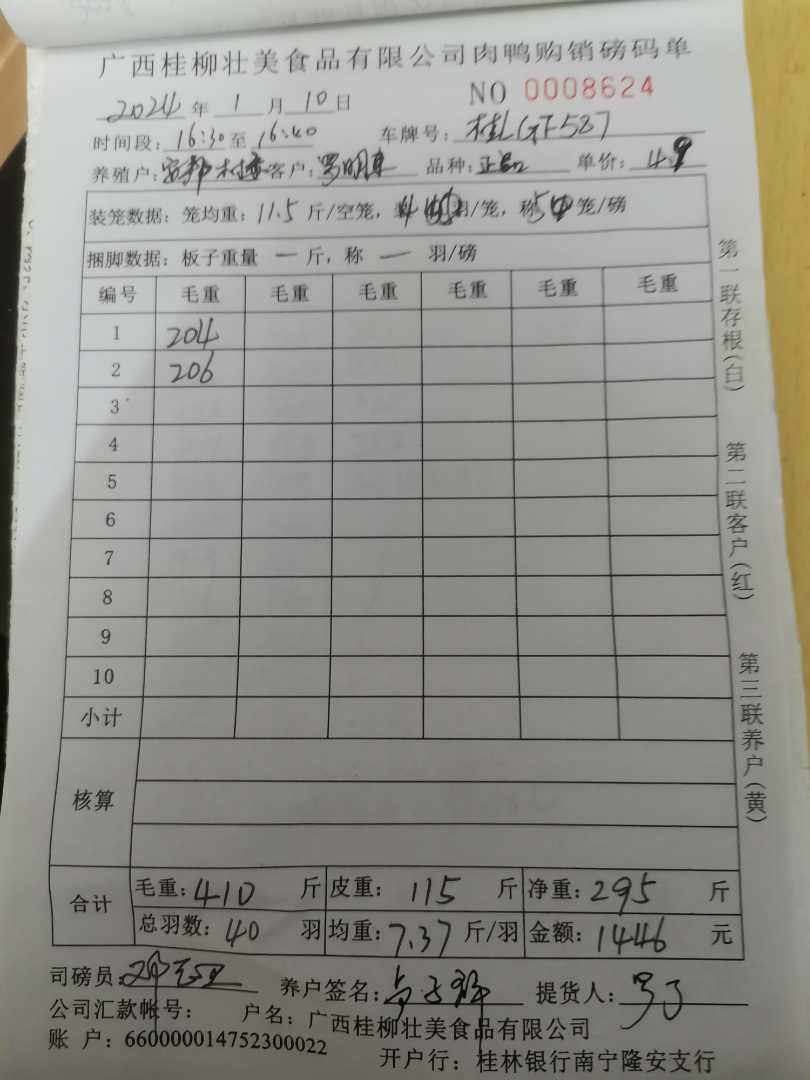 广西桂柳壮美食品有限公司肉鸭购销磅码单
NO 0008624
2024 年 1 月 10 日
时间段: 16:30 至 16:40 车牌号: 桂
养殖户: 客户: 罗明 品种: 正品 单价: 4.9
装笼数据: 笼均重: 11.5 斤/空笼, 羽/笼, 称 5 笼/磅
捆脚数据: 板子重量 一 斤, 称 一 羽/磅
编号 毛重 毛重 毛重 毛重 毛重 毛重
1 204
2 206
3
4
5
6
7
8
9
10
小计
核算
合计 毛重: 410 斤 皮重: 115 斤 净重: 295 斤
总羽数: 40 羽 均重: 7.37 斤/羽 金额: 1446 元
司磅员: 养户签名: 提货人:
公司汇款帐号: 户名: 广西桂柳壮美食品有限公司
账 户: 660000014752300022 开户行: 桂林银行南宁隆安支行
第一联存根(白) 第二联客户(红) 第三联养户(黄)